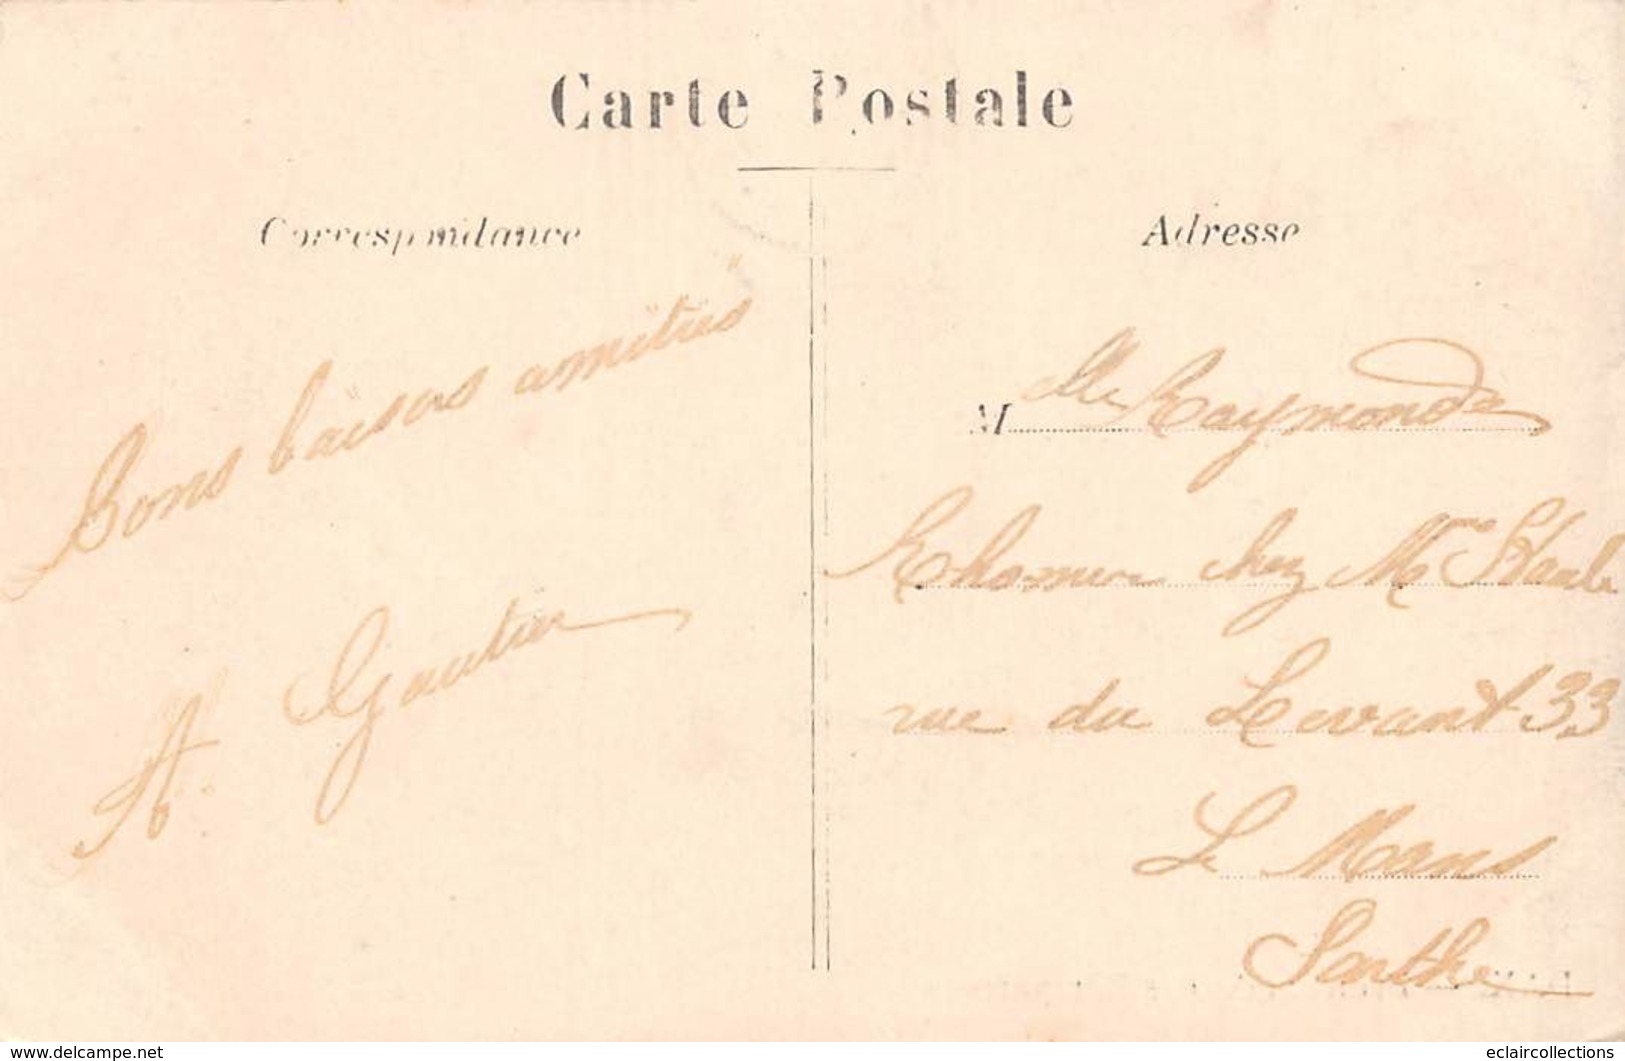 Carte Postale
Correspondance
Bons baisers amitiés
A. Gautier
Adresse
Melle Raymonde
chez Mr
rue du Levant 33
Le Mans
Sarthe
www.delcampe.net
eclaircollections